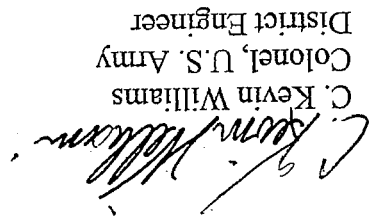 C. Kevin Williams
C. Kevin Williams
Colonel, U.S. Army
District Engineer